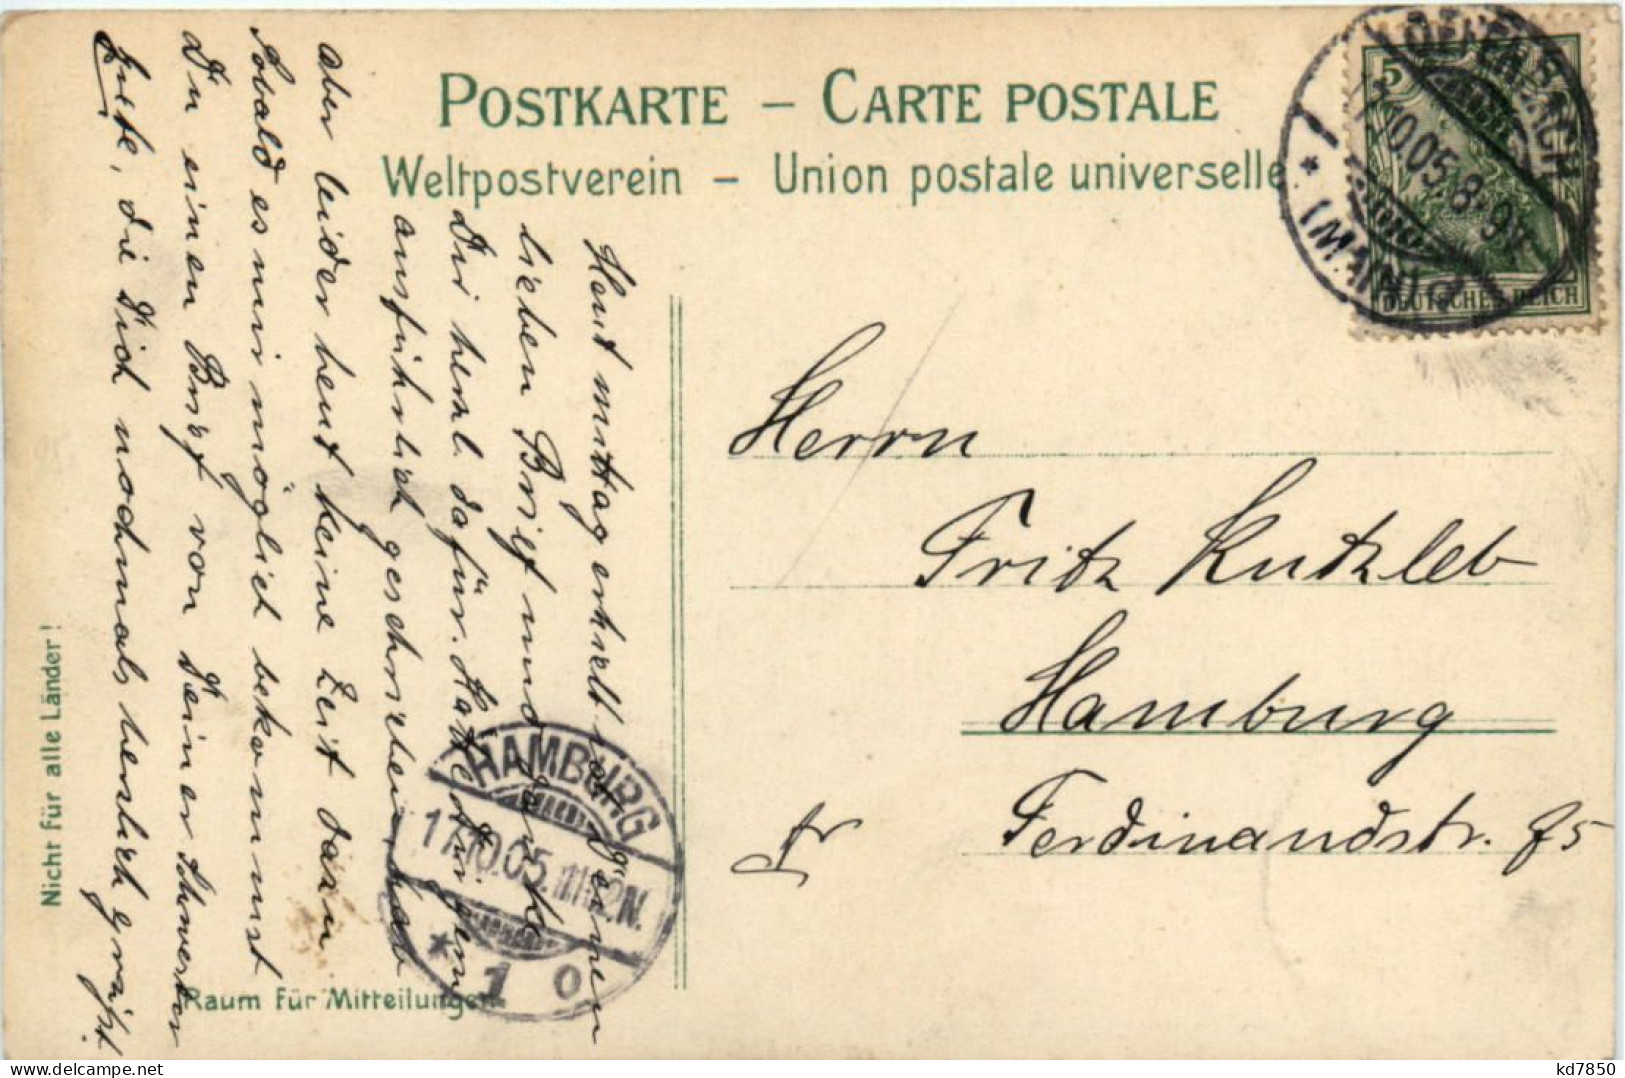 POSTKARTE – CARTE POSTALE
Weltpostverein – Union postale universelle
OFFENBACH
10.05.8-9
* (MAIN)
5
DEUTSCHES REICH
Heut mittag erhielt ich Deinen
lieben Brief und danke
Dir herzl. dafür. Hätte Dir gern
ausführlich geschrieben, hab
aber leider heut keine Zeit dazu
sobald es mir möglich bekommst
Du einen Brief von Deiner Schwester
die Dich nochmals herzlich grüßt.
Herrn
Fritz Kutzleb
Hamburg
Ferdinandstr. 75
HAMBURG
17.10.05. 11-12N.
* 1 o
Raum für Mitteilungen.
Nicht für alle Länder!
kd7850